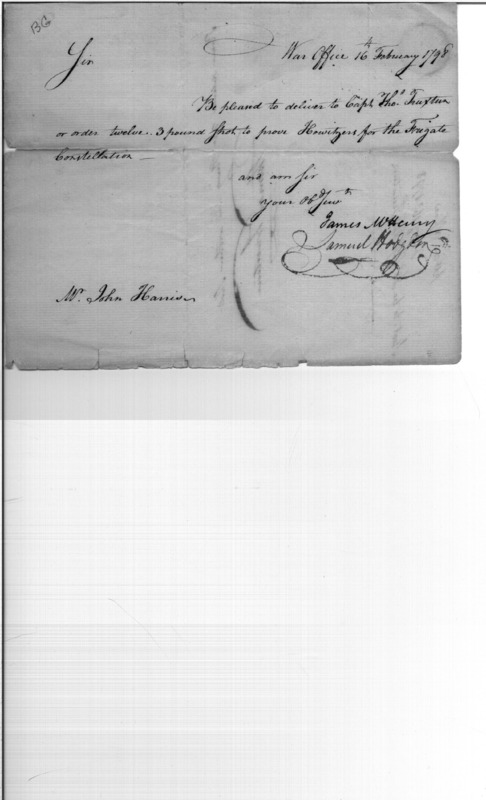 BG
War Office 16th February 1798
Sir
Be pleased to deliver to Capt Thos Truxtun
or order twelve.. 3 pound shot to prove Howitzers for the Frigate
Constellation —
and am Sir
your Obd Servt
James McHenry
Samuel Hodgdon
Mr. John Harris